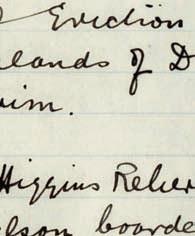 Eviction
lands of D
Higgins Reher
lson boarde